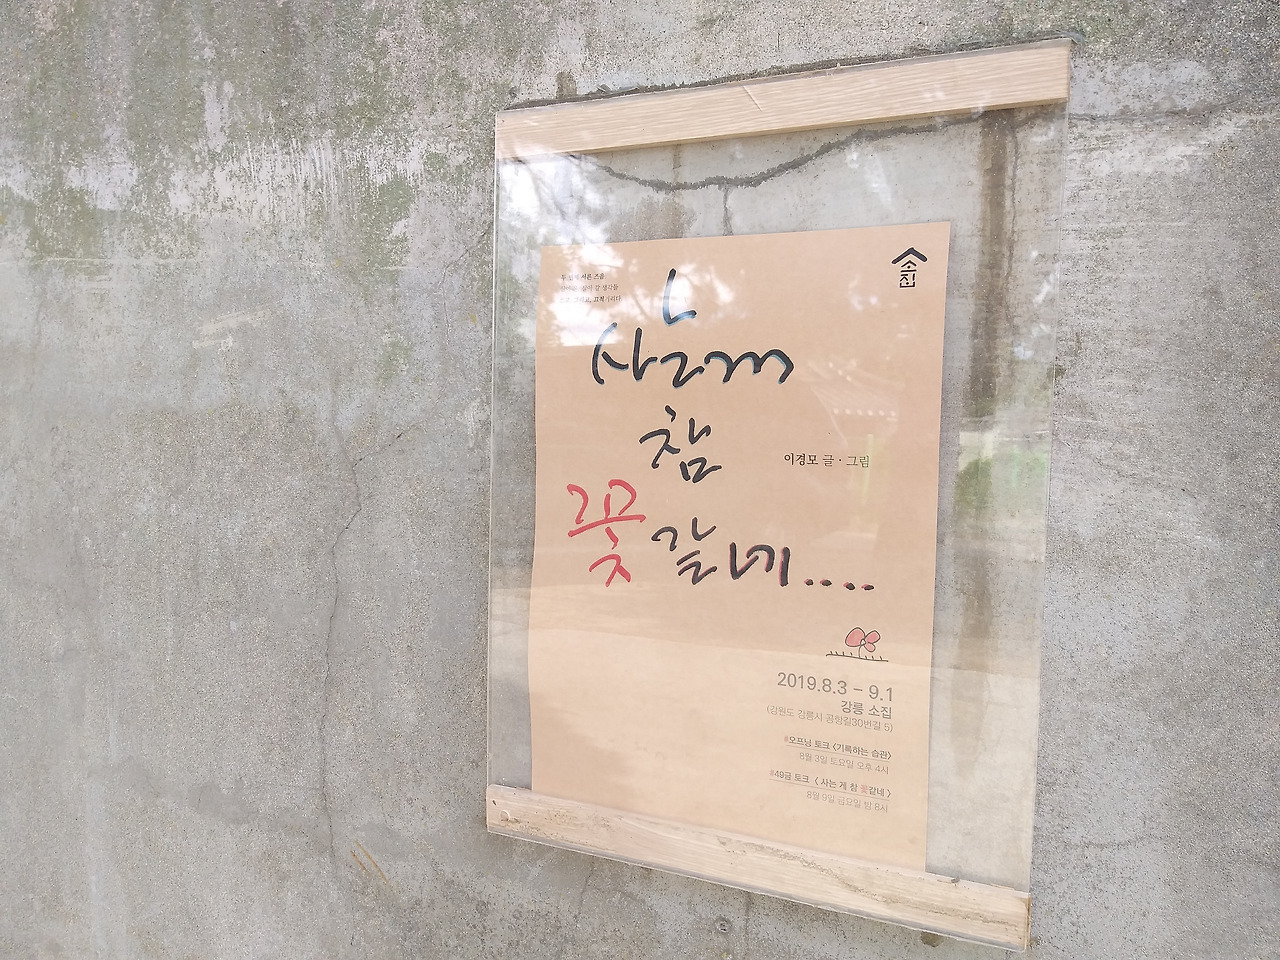 서른 즈음.
살아 갈 생각들
끄적거리다.
소집
사는게
참
꽃같네....
이경모 글·그림
2019.8.3 – 9.1
강릉 소집
(강원도 강릉시 공항길30번길 5)
#오프닝 토크 <기록하는 습관>
8월 3일 토요일 오후 4시
#49금 토크 < 사는 게 참 꽃같네 >
8월 9일 금요일 밤 8시